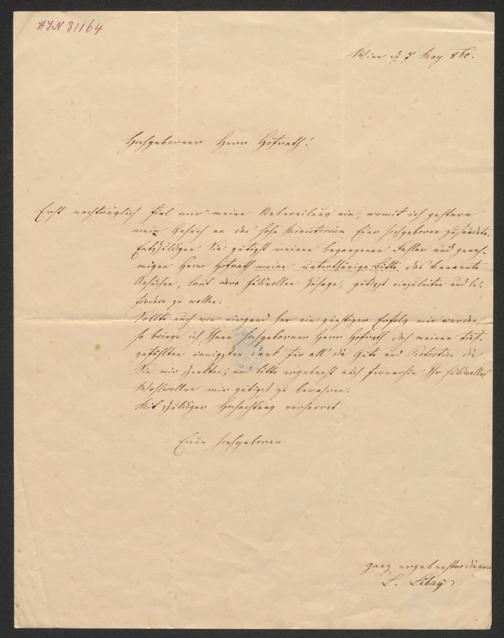 HIN 31164
Wien d 7 May 860.
Hochgeborner Herr Hofrath!
Erst nachträglich fiel mir meine Uebereilung ein, womit ich gestern
mein Gesuch an das hohe Ministerium Euer Hochgeboren zusandte,
Entschuldigen Sie gütigst meinen begangenen Fehler und geneh-
migen Herr Hofrath meine unterthänige Bitte, das benannte
Gesuch, laut gütigst einzuleiten und be-
fördern zu wollen.
Sollte auch von nirgend her ein günstiger Erfolg mir werden
so bringe ich Ihnen Hochgeborner Herr Hofrath doch meinen tief-
gefühlten innigsten Dank für all' die Güte und die
Sie mir schenkten, und bitte ergebenst auch fernerhin Ihr
Wohlwollen mir gütigst zu bewahren.
Mit schuldiger Hochachtung verharret
Euer Hochgeboren
ganz ergebenster Diener
L. Libay